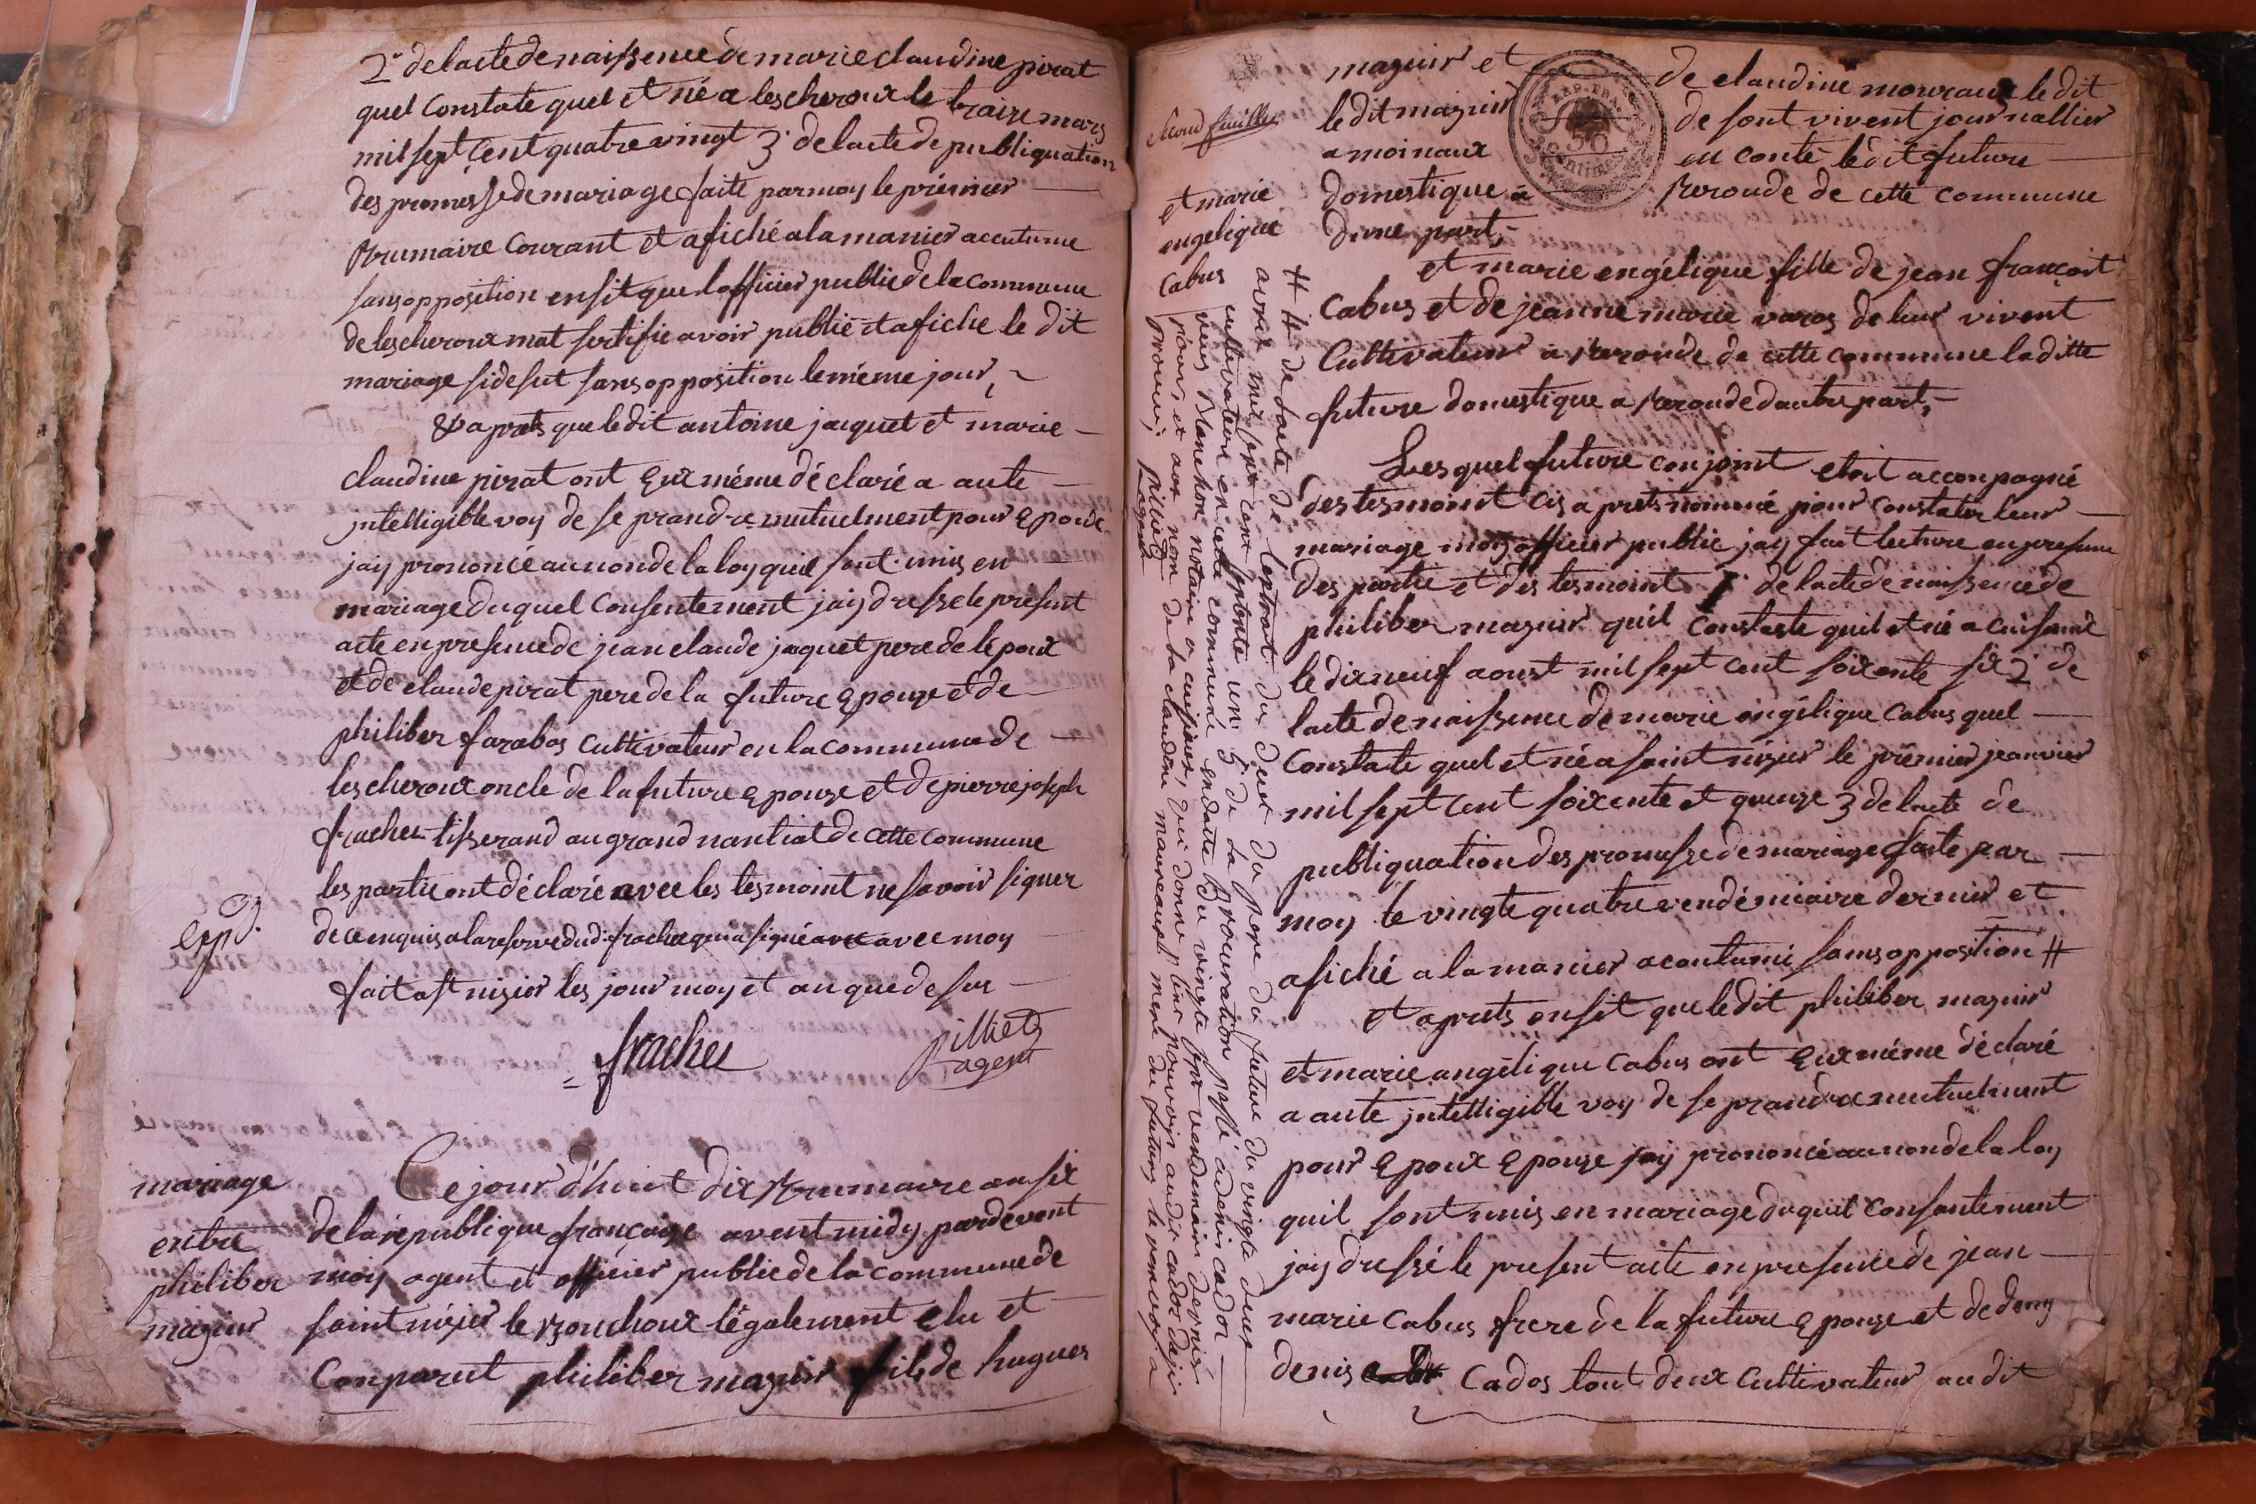 2° de lacte de naissence de marie claudine pirat
quel constate quel et né a lescheroux le traize mars
mil sept cent quatre vingt 3° de lacte de publiquation
des promesse de mariage faite par moy le prémier
Brumaire courant et afiché a la manier accutume
sans opposition ensit que lofficier public de la commune
de lescheroux mat sertifie avoir publié et afiche le dit
mariage side sut sans opposition le méme jour,
& aprets que ledit antoine jacquet et marie
claudine pirat ont eux méme déclaré a aute
jntelligible voy de se prandre mutuelment pour epouse
jay prononcé au non de la loy quil sont unis en
mariage duquel consentement jay dressé le présent
acte en presence de jean claude jaquet pere de lépoux
et de claude pirat pere de la future epouze et de
philiber farabos cultivateur en la commune de
lescheroux oncle de la future epouze et de pierre joseph
frachet tisserand au grand nantiat de cette commune
les partie ont déclaré avec les tesmoint ne savoir signer
de ce enquis a la reserve dudit frachet qui a signé avec avec moy
fait a st nizier les jour moy et an que de sus
frachet
pilliets
agent
mariage
entre
philiber
maguir
Ce jour d'huit dix Brumaire an six
de la république françaize avent midy pardevent
moy agent et officier public de la commune de
saint nizier le Bouchoux légalement elu et
conparut philiber maguir fils de hugues
second feuille
et marie
engelique
cabus
maguir et
ledit maguir
a moinaux
domestique a
dune part,
REP. FRA.
50
Centimes
de claudine mouraux le dit
de sont vivent journallier
en conté ledit future
Beroude de cette commune
et marie engélique fille de jean françoit
cabus et de jeanne marie varos de leur vivent
cultivateur a Beroude de cette commune laditte
future domestique a Beroude dautre part,
Les quel future conjoint etoit acconpagné
des tesmoint cis aprets nommé pour constater leur
mariage moy officier public jay fait lecture en presence
des partie et des tesmoint 1° de lacte de naissence de
philiber maguir quil constate quil et né a cuiseaux
le dix neuf aoust mil sept cent soixente six 2° de
lacte de naissence de marie angélique cabus quel
constate quel et né a saint nizier le prémier jeanvier
mil sept cent soixente et quinze 3 de lacte de
publiquation des promesse de mariage faite par
moy le vingte quatre vendémiaire dernier et
afiché a la manier acoutumé sans opposition #
et aprets ensit que le dit philiber maguir
et marie angélique cabus ont eux méme déclaré
a aute jntelligible voy de se prandre mutuelment
pour epoux epouze jay prononcé au non de la loy
quil sont unis en mariage duquel consentement
jay dressé le present acte en presence de jean
marie cabus frere de la future epouze et de deny
denis cados tout deux cultivateur au dit
# 4° de lacte de lextrait du deces du pere du future du vingte deux
avril mil sept cent septente un 5° de la procuration passé a denis cados
cultivateur en cette commune en datte du vingte sept vendemiaire dernié
notaire a cuiseaux, qui donne plin pouvoir audit cados dajir
pour et aux non de la claudine maureaux mere du future le pouvoir a
pilliets
Lagent